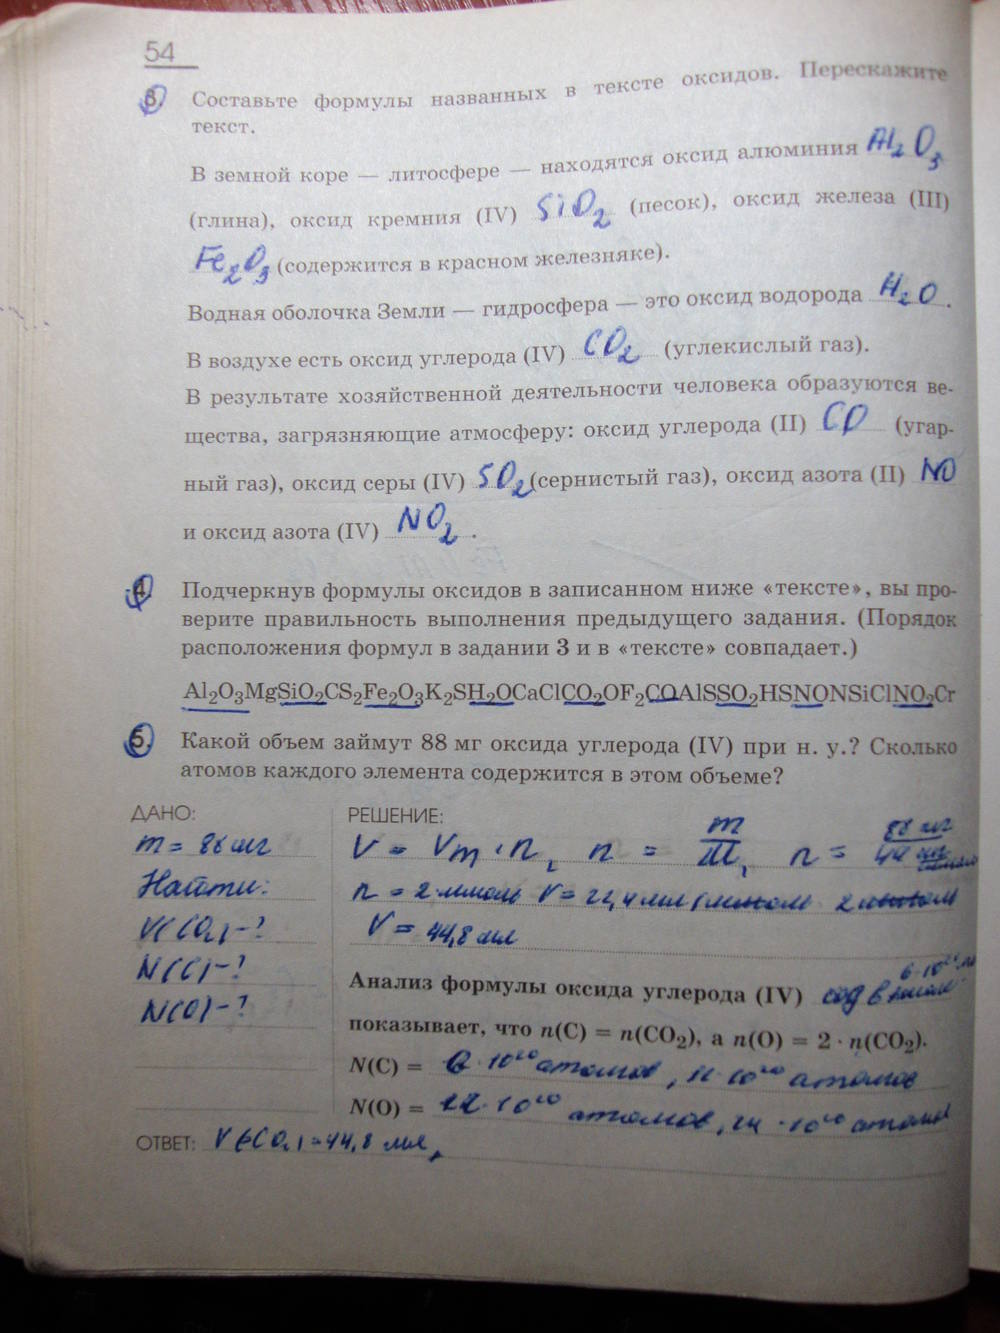 54
3. Составьте формулы названных в тексте оксидов. Перескажите
текст.
В земной коре — литосфере — находятся оксид алюминия Al₂O₃
(глина), оксид кремния (IV) SiO₂ (песок), оксид железа (III)
Fe₂O₃ (содержится в красном железняке).
Водная оболочка Земли — гидросфера — это оксид водорода H₂O.
В воздухе есть оксид углерода (IV) CO₂ (углекислый газ).
В результате хозяйственной деятельности человека образуются ве-
щества, загрязняющие атмосферу: оксид углерода (II) CO (угар-
ный газ), оксид серы (IV) SO₂ (сернистый газ), оксид азота (II) NO
и оксид азота (IV) NO₂.
4. Подчеркнув формулы оксидов в записанном ниже «тексте», вы про-
верите правильность выполнения предыдущего задания. (Порядок
расположения формул в задании 3 и в «тексте» совпадает.)
Al₂O₃MgSiO₂CS₂Fe₂O₃K₂SH₂OCaClCO₂OF₂COAlSSO₂HSNONSiClNO₂Cr
5. Какой объем займут 88 мг оксида углерода (IV) при н. у.? Сколько
атомов каждого элемента содержится в этом объеме?
ДАНО: РЕШЕНИЕ:
m = 88 мг V = Vm · n, n = m/M, n = 88 мг/44
Найти: n = 2 ммоль V = 22,4 мл 2 ммоль
V(CO₂) - ? V = 44,8 мл
N(C) - ? Анализ формулы оксида углерода (IV)
N(O) - ? показывает, что n(C) = n(CO₂), а n(O) = 2 · n(CO₂).
N(C) = атомов, 12 · 10²⁰ атомов
N(O) = атомов, 24 · 10²⁰ атомов
ОТВЕТ: V(CO₂) = 44,8 мл,